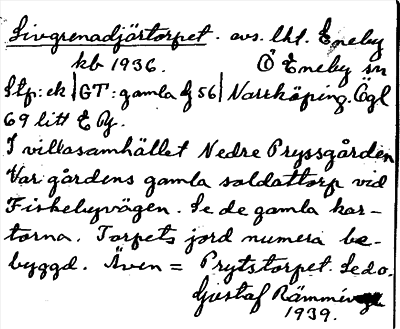 Livgrenadjärtorpet. avs. lht. Eneby
kb 1936. Ö Eneby sn
Stp: ek | GT: gamla bj 56 | Norrköping. Ögl
69 litt E By.
I villasamhället Nedre Pryssgården
Var gårdens gamla soldattorp vid
Fiskebyvägen. Se de gamla kar-
torna. Torpets jord numera be-
byggd. Även = Prytstorpet. Se d.o.
Gustaf
1939.